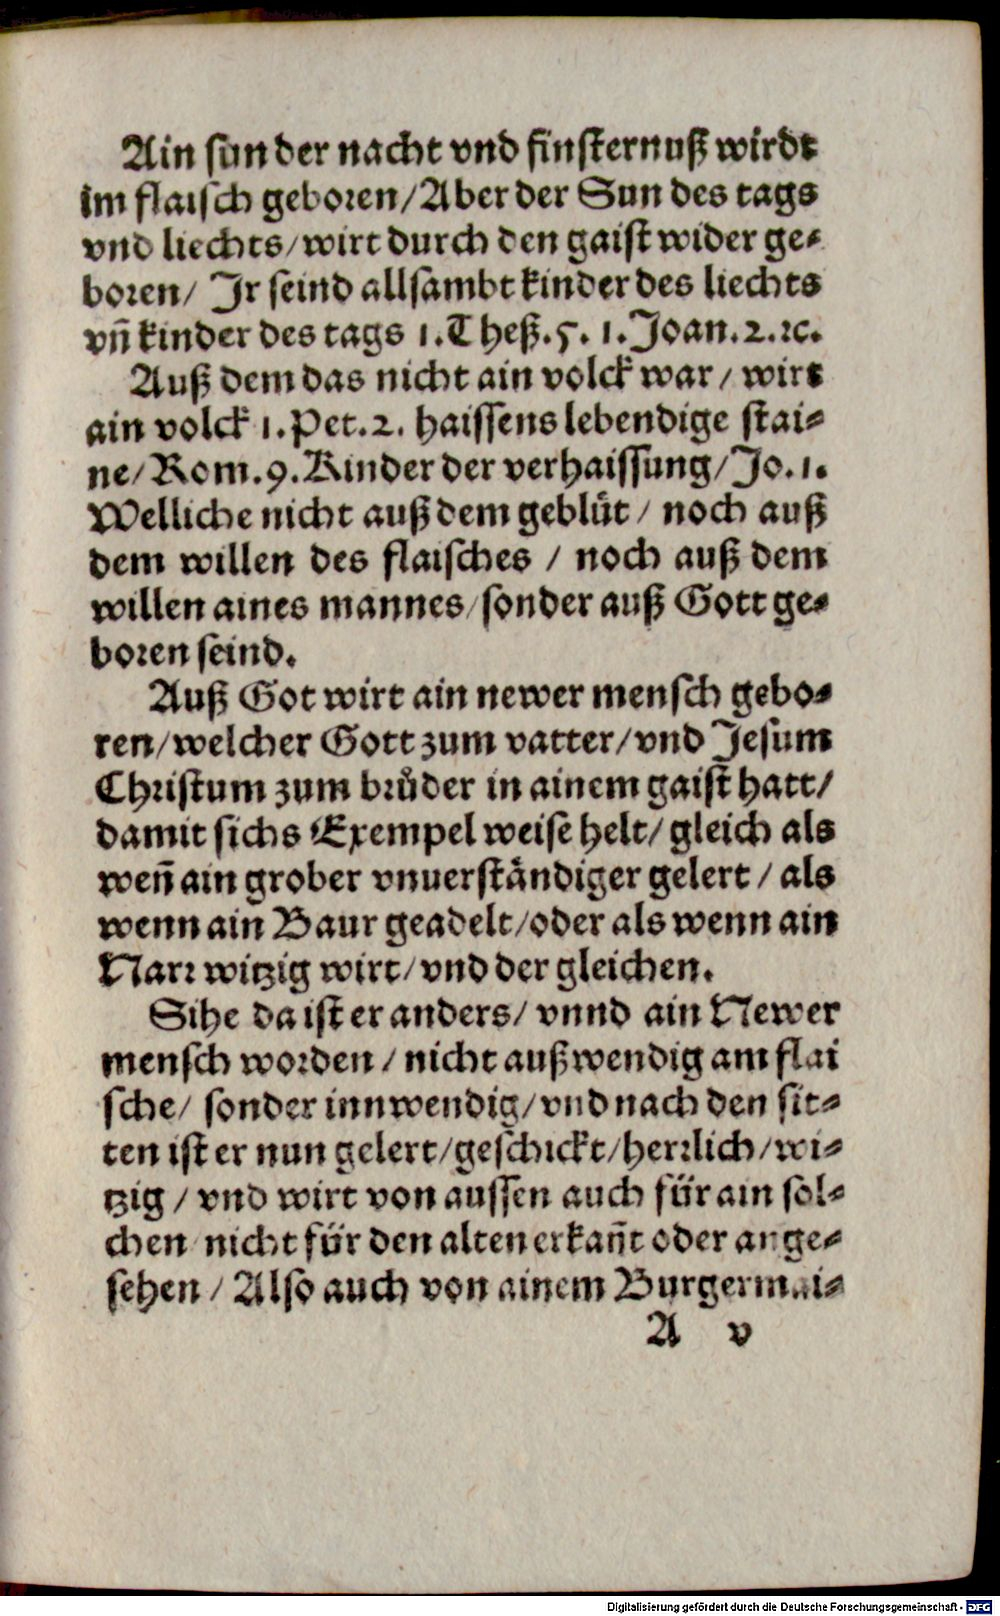 Ain sun der nacht vnd finsternuß wirdt
im flaisch geboren/Aber der Sun des tags
vnd liechts/wirt durch den gaist wider ge⸗
boren/ Jr seind allsambt kinder des liechts
vñ kinder des tags 1.Theß.5. 1.Joan.2.ꝛc.
Auß dem das nicht ain volck war/ wirt
ain volck 1.Pet.2. haissens lebendige stai⸗
ne/Rom.9.Kinder der verhaissung/Jo.1.
Welliche nicht auß dem geblüt/ noch auß
dem willen des flaisches / noch auß dem
willen aines mannes/sonder auß Gott ge⸗
boren seind.
Auß Got wirt ain newer mensch gebo⸗
ren/welcher Gott zum vatter/vnd Jesum
Christum zum brůder in ainem gaist hatt/
damit sichs Exempel weise helt/ gleich als
weñ ain grober vnuerständiger gelert / als
wenn ain Baur geadelt/oder als wenn ain
Narr witzig wirt/vnd der gleichen.
Sihe da ist er anders/ vnnd ain Newer
mensch worden / nicht außwendig am flai
sche/ sonder innwendig/vnd nach den sit⸗
ten ist er nun gelert/geschickt/herrlich/wi⸗
tzig / vnd wirt von aussen auch für ain sol⸗
chen nicht für den alten erkañt oder ange⸗
sehen / Also auch von ainem Burgermai⸗
A v
Digitalisierung gefördert durch die Deutsche Forschungsgemeinschaft - DFG